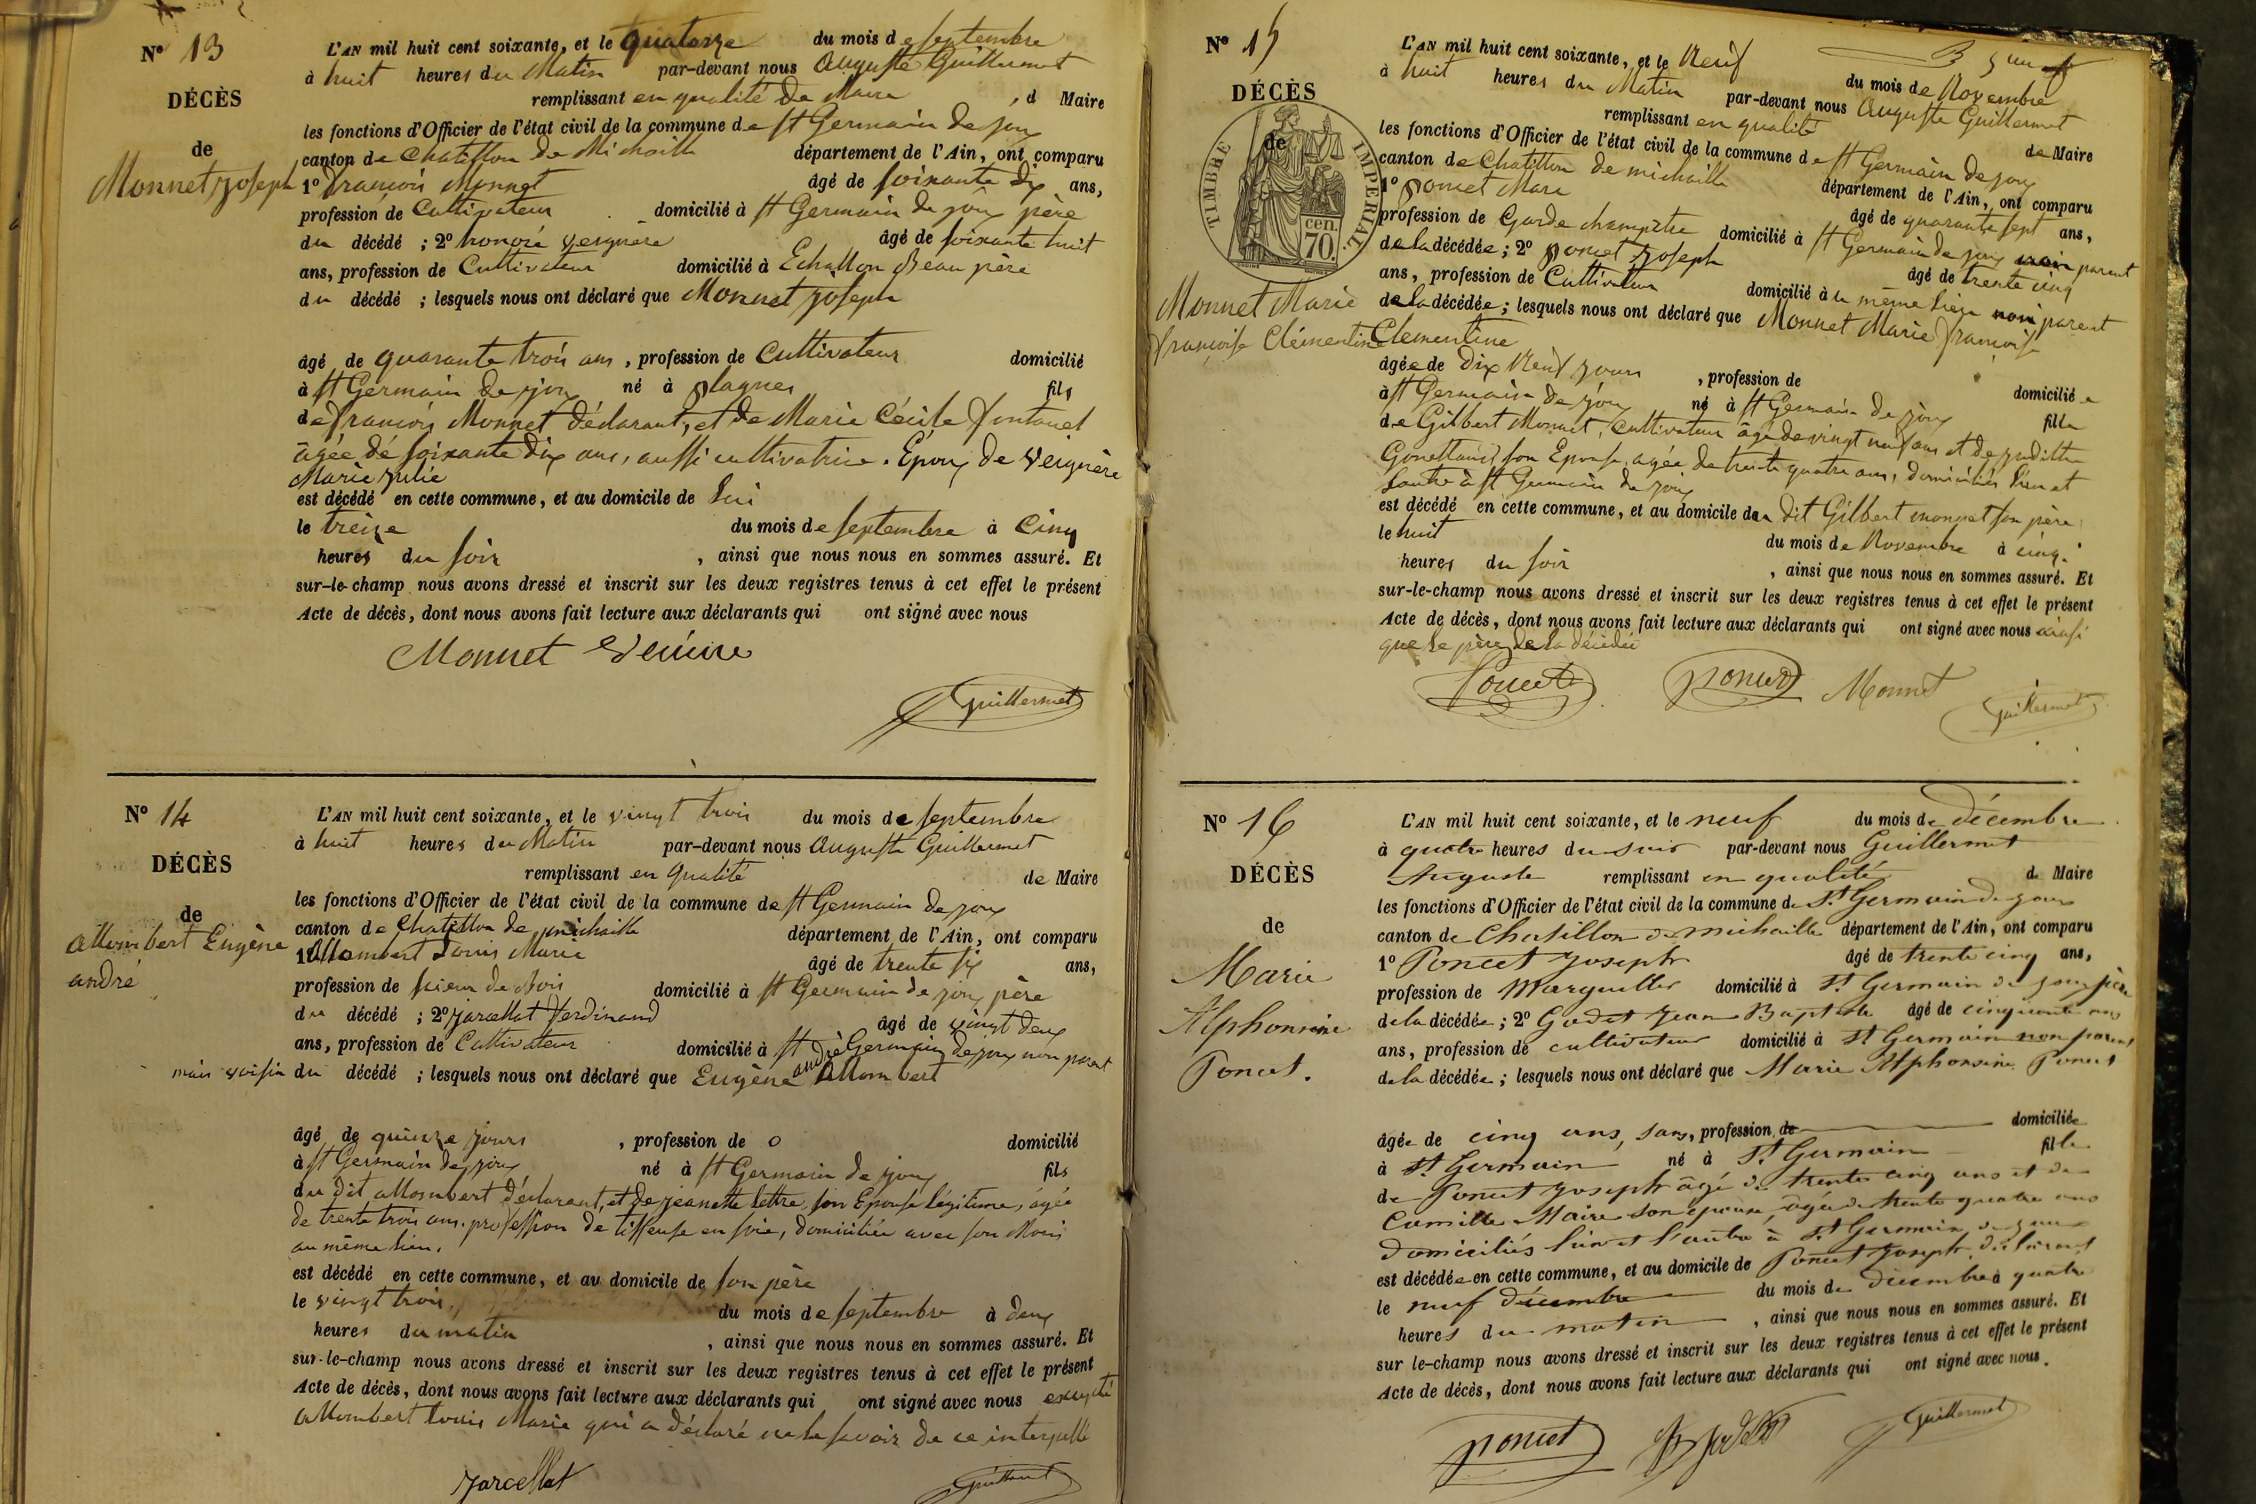 N° 13
DÉCÈS
de
Monnet Joseph
L'AN mil huit cent soixante, et le quatorze du mois de septembre
à huit heures du Matin par-devant nous Auguste Guillermet
remplissant en qualité de Maire , d Maire
les fonctions d'Officier de l'état civil de la commune de St Germain de joux
canton de Chatillon de Michaille département de l'Ain, ont comparu
1° François Monnet âgé de soixante dix ans,
profession de Cultivateur domicilié à St Germain de joux père
du décédé ; 2° honoré âgé de soixante huit
ans, profession de Cultivateur domicilié à Echallon Beau père
du décédé ; lesquels nous ont déclaré que Monnet Joseph
âgé de quarante trois ans , profession de Cultivateur domicilié
à St Germain de joux né à plagnes fils
de François Monnet déclarant, et de Marie Cécile
âgée de soixante dix ans, aussi cultivatrice. Époux de Veignère
Marie Julie
est décédé en cette commune, et au domicile de lui
le treize du mois de septembre à Cinq
heures du soir , ainsi que nous nous en sommes assuré. Et
sur-le-champ nous avons dressé et inscrit sur les deux registres tenus à cet effet le présent
Acte de décès, dont nous avons fait lecture aux déclarants qui ont signé avec nous
Monnet
Guillermet
N° 14
DÉCÈS
de
Allombert Eugène
andré
L'AN mil huit cent soixante, et le vingt trois du mois de septembre
à huit heures du Matin par-devant nous Auguste Guillermet
remplissant en qualité de Maire
les fonctions d'Officier de l'état civil de la commune de St Germain de joux
canton de Chatillon de michaille département de l'Ain, ont comparu
1° Allombert Louis Marie âgé de trente six ans,
profession de scieur de bois domicilié à St Germain de joux père
du décédé ; 2° Jarcellat Ferdinand âgé de vingt deux
ans, profession de Cultivateur domicilié à St Germain de joux non parent
mais voisin du décédé ; lesquels nous ont déclaré que Eugène andré Allombert
âgé de quinze jours , profession de 0 domicilié
à St Germain de joux né à St Germain de joux fils
du dit allombert déclarant, et de jeanette lettre, son Epouse légitime, agée
de trente trois ans. profession de tisseuse en soie, domiciliée avec son Mari
au même lieu.
est décédé en cette commune, et au domicile de son père
le vingt trois du mois de septembre à deux
heures du matin , ainsi que nous nous en sommes assuré. Et
sur-le-champ nous avons dressé et inscrit sur les deux registres tenus à cet effet le présent
Acte de décès, dont nous avons fait lecture aux déclarants qui ont signé avec nous excepté
allombert Louis Marie qui a déclaré ne le savoir de ce interpellé
Jarcellat
Guillermet
N° 15
DÉCÈS
de
TIMBRE IMPERIAL.
cen. 70.
Monnet Marie
françoise Clémentine
L'AN mil huit cent soixante, et le Neuf du mois de Novembre
à huit heures du Matin par-devant nous Auguste Guillermet
remplissant en qualité de Maire
les fonctions d'Officier de l'état civil de la commune de St Germain de joux
canton de Chatillon de michaille département de l'Ain, ont comparu
1° poncet Marc âgé de quarante sept ans,
profession de Garde champetre domicilié à St Germain de joux non parent
de la décédée ; 2° poncet Joseph âgé de trente cinq
ans, profession de Cultivateur domicilié à u même lieu non parent
de la décédée ; lesquels nous ont déclaré que Monnet Marie françoise
Clementine
âgée de dix Neuf jours , profession de domiciliée
à St Germain de joux né à St Germain de joux fille
de Gilbert Monnet, cultivateur âgé de vingt neuf ans et de judith
son Epouse, agée de trente quatre ans, domiciliés l'un et
l'autre à St Germain de joux
est décédé en cette commune, et au domicile du dit Gilbert monnet son père
le huit du mois de Novembre à cinq
heures du soir , ainsi que nous nous en sommes assuré. Et
sur-le-champ nous avons dressé et inscrit sur les deux registres tenus à cet effet le présent
Acte de décès, dont nous avons fait lecture aux déclarants qui ont signé avec nous ainsi
que le père de la décédée
Poncet poncet Monnet
Guillermet
N° 16
DÉCÈS
de
Marie
Alphonsine
Poncet.
L'AN mil huit cent soixante, et le neuf du mois de décembre
à quatre heures du soir par-devant nous Guillermet
Auguste remplissant en qualité de Maire
les fonctions d'Officier de l'état civil de la commune de St Germain de joux
canton de Chatillon de michaille département de l'Ain, ont comparu
1° Poncet Joseph âgé de trente cinq ans,
profession de Marguiller domicilié à St Germain de joux père
de la décédée ; 2° Godet Jean Baptiste âgé de cinquante ans
ans, profession de cultivateur domicilié à St Germain non parent
de la décédée ; lesquels nous ont déclaré que Marie Alphonsine Poncet
âgée de cinq ans, sans, profession de domiciliée
à St Germain né à St Germain fille
de Poncet Joseph âgé de trente cinq ans et de
Camille Maire son épouse, âgée de trente quatre ans
domiciliés l'un et l'autre à St Germain de joux
est décédée en cette commune, et au domicile de Poncet Joseph, déclarant
le neuf décembre du mois de décembre à quatre
heures du matin , ainsi que nous nous en sommes assuré. Et
sur le-champ nous avons dressé et inscrit sur les deux registres tenus à cet effet le présent
Acte de décès, dont nous avons fait lecture aux déclarants qui ont signé avec nous.
poncet
Guillermet